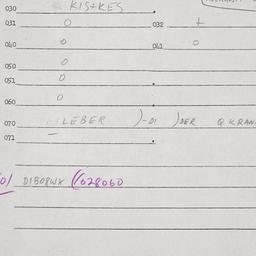 030 KIS+KES
031 0 032 +
040 0 041 0
050 0
051 0
060 0
070 LEBER )-DI )DER Q KRAN
071 -
01 DIBO8WX (1028060